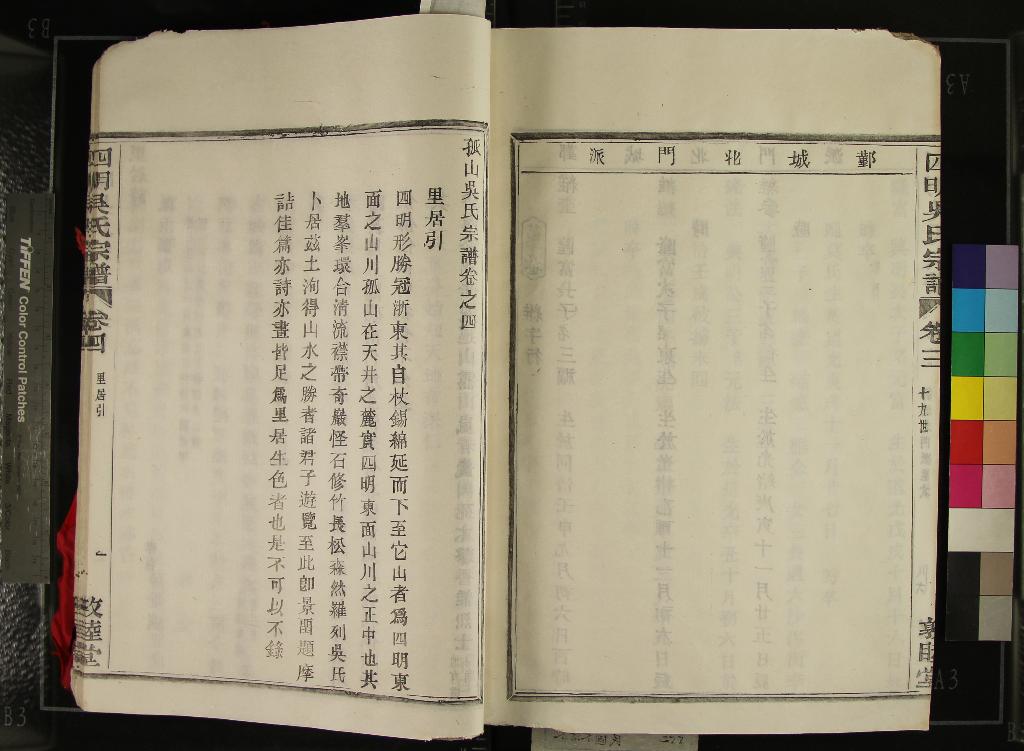 鄞城北門派
四明吳氏宗譜 卷三 十九世
敦睦堂
孤山吳氏宗譜卷之四
里居引
四明形勝冠浙東其自杖錫綿延而下至它山者爲四明東
面之山川孤山在天井之麓實四明東面山川之正中也其
地羣峯環合清流襟帶奇巖怪石修竹長松森然羅列吳氏
卜居茲土洵得山水之勝者諸君子遊覽至此卽景留題摩
詰佳篇亦詩亦畫皆足爲里居生色者也是不可以不錄
四明吳氏宗譜 卷四 里居引 一
敦睦堂
TIFFEN Color Control Patches
A3
B3
A3
B3